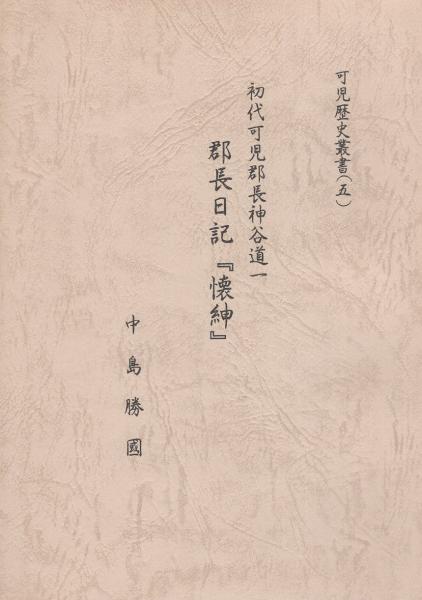 可児歴史叢書(五)
初代可児郡長神谷道一
郡長日記『懐紳』
中島勝國